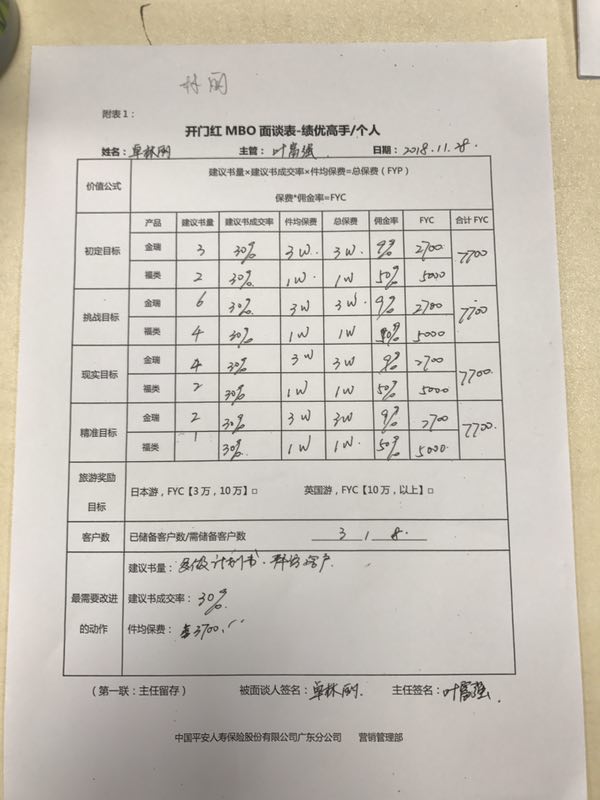 林丽
附表1：
开门红 MBO 面谈表-绩优高手/个人
姓名：卓林丽 主管：叶富强 日期：2018.11.28.
价值公式 建议书量×建议书成交率×件均保费=总保费（FYP）
保费*佣金率=FYC
产品 建议书量 建议书成交率 件均保费 总保费 佣金率 FYC 合计 FYC
初定目标 金瑞 3 30% 3W. 3W. 9% 2700 7700
福类 2 30% 1W. 1W 50% 5000
挑战目标 金瑞 6 30% 3W 3W. 9% 2700 7700
福类 4 30% 1W 1W 50% 5000
现实目标 金瑞 4 30% 3W 3W 9% 2700 7700.
福类 2 30% 1W 1W 50% 5000
精准目标 金瑞 2 30% 3W 3W 9% 2700 7700.
福类 1 30% 1W 1W. 50% 5000.
旅游奖励目标 日本游，FYC【3万，10万】□ 英国游，FYC【10万，以上】□
客户数 已储备客户数/需储备客户数 3 1 8.
最需要改进的动作
建议书量：多做计划书.
建议书成交率：30%.
件均保费：3700.
（第一联：主任留存） 被面谈人签名：卓林丽. 主任签名：叶富强.
中国平安人寿保险股份有限公司广东分公司 营销管理部